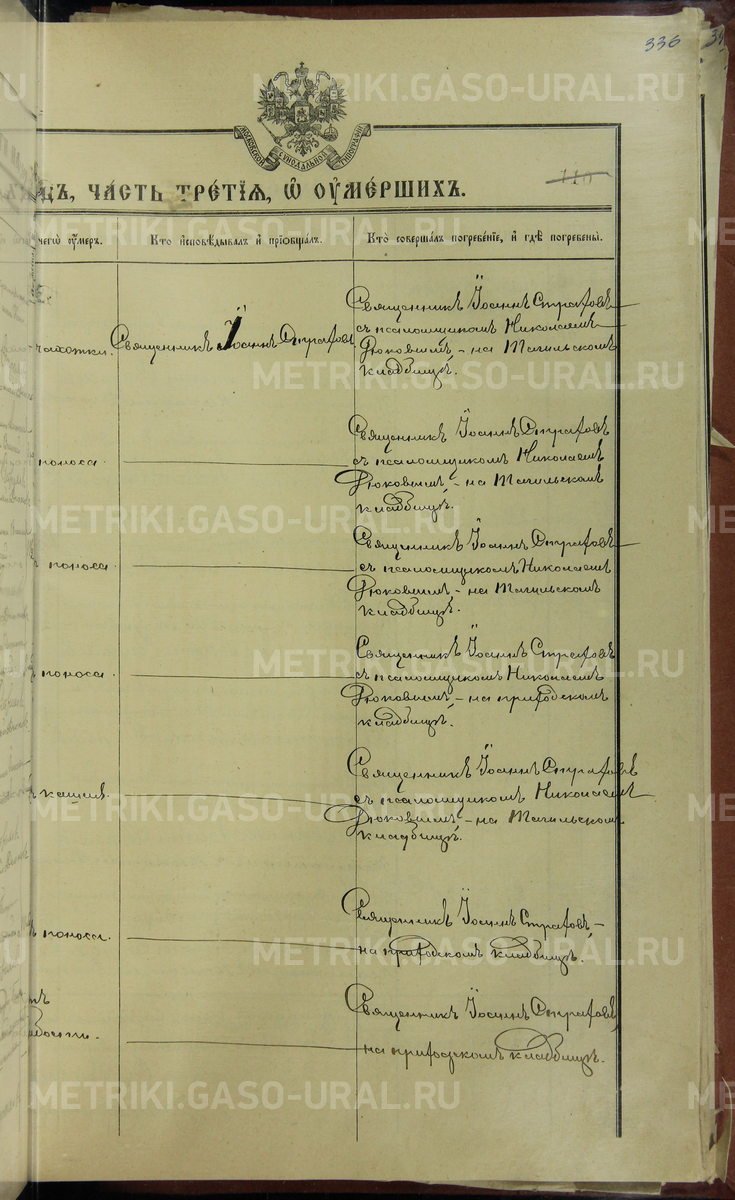 336
МОСКОВСКОЙ СѴНОДАЛЬНОЙ ТИПОГРАФІИ
110
ЧА́СТЬ ТРЕ́ТЇѦ, Ѡ҆ ОУ҆МЕ́РШИХЪ.
чегѡ̀ оу҆́меръ.
Кто̀ и҆сповѣ́дывалъ и҆ прїѡбща́лъ.
Кто̀ соверша́лъ погребе́нїе, и҆ гдѣ̀ погребены̀.
чахотки.
Священникъ Іоаннъ Страховъ
Священникъ Іоаннъ Страховъ
съ псаломщикомъ Николаемъ
на Тагильскомъ
кладбищѣ.
поноса.
Священникъ Іоаннъ Страховъ
съ псаломщикомъ Николаемъ
на Тагильскомъ
кладбищѣ.
поноса.
Священникъ Іоаннъ Страховъ
съ псаломщикомъ Николаемъ
на Тагильскомъ
кладбищѣ.
поноса.
Священникъ Іоаннъ Страховъ
съ псаломщикомъ Николаемъ
на приходскомъ
кладбищѣ.
кашля.
Священникъ Іоаннъ Страховъ
съ псаломщикомъ Николаемъ
на Тагильскомъ
кладбищѣ.
поноса.
Священникъ Іоаннъ Страховъ,
на приходскомъ кладбищѣ.
Священникъ Іоаннъ Страховъ,
на приходскомъ кладбищѣ.
METRIKI.GASO-URAL.RU